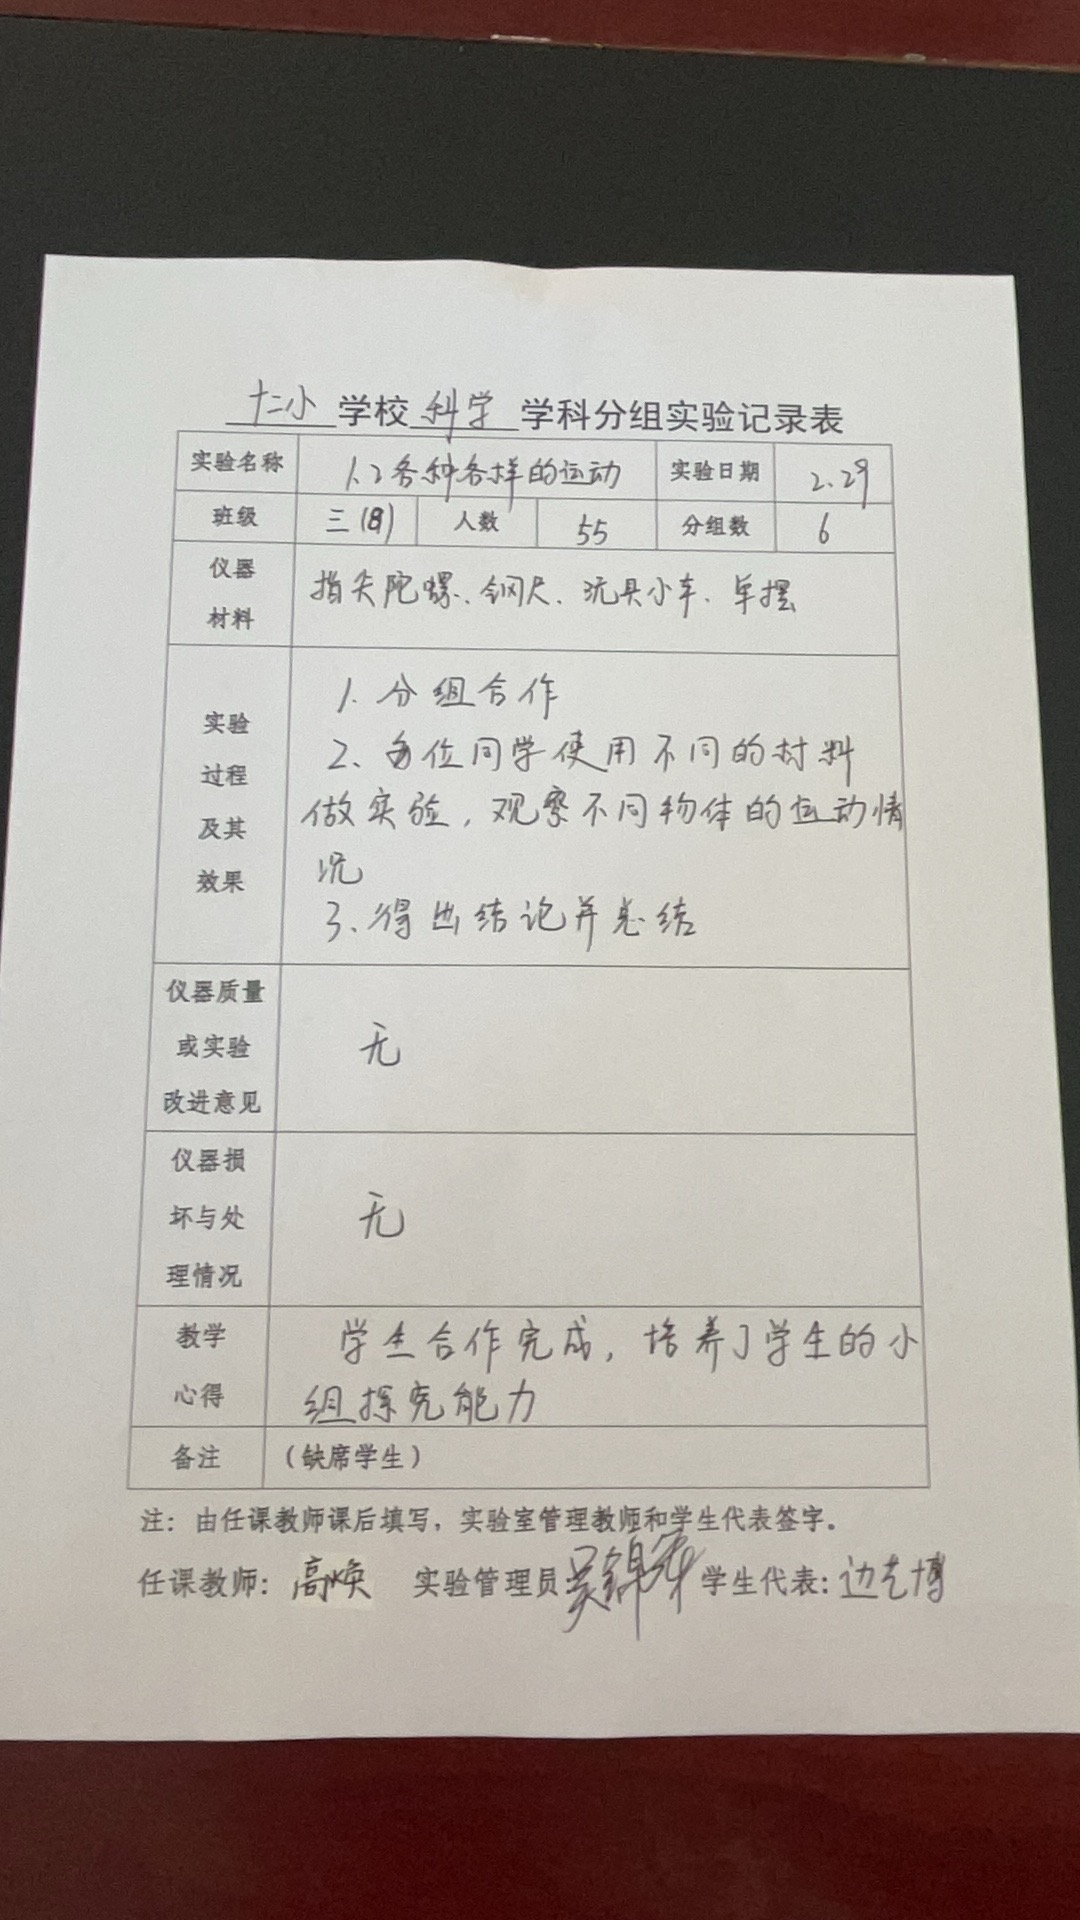 十二小 学校 科学 学科分组实验记录表
实验名称 1.2各种各样的运动 实验日期 2.29
班级 三(8) 人数 55 分组数 6
仪器
材料
指尖陀螺、钢尺、玩具小车、单摆
实验
过程
及其
效果
1.分组合作
2、每位同学使用不同的材料
做实验,观察不同物体的运动情
况
3、得出结论并总结
仪器质量
或实验
改进意见
无
仪器损
坏与处
理情况
无
教学
心得
学生合作完成,培养了学生的小
组探究能力
备注 (缺席学生)
注:由任课教师课后填写,实验室管理教师和学生代表签字。
任课教师:高焕 实验管理员 吴锦 学生代表:边艺博